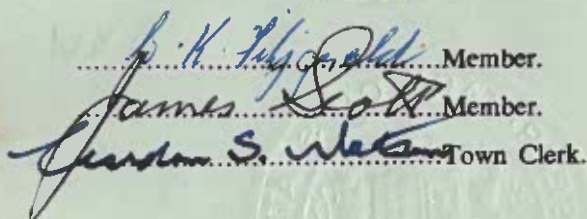 K. Fitzgerald Member.
James Scott Member.
Gordon S. Watson Town Clerk.